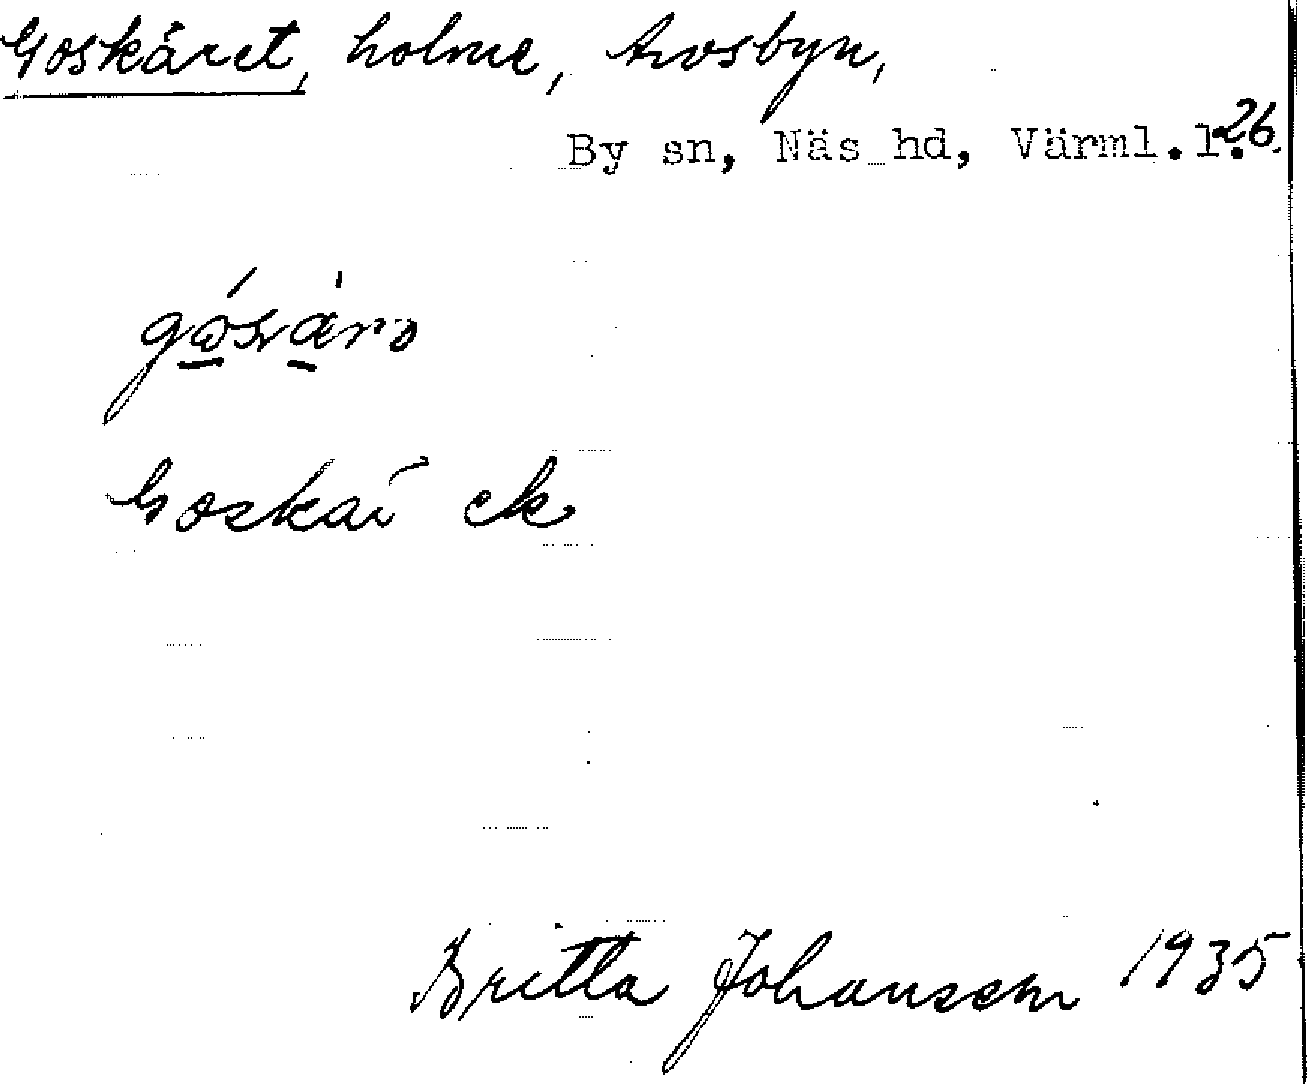 Goskäret, holme, Avosbyn,
By sn, Näs hd, Värml.l. 26
Goskär ek
Britta Johansson 1935